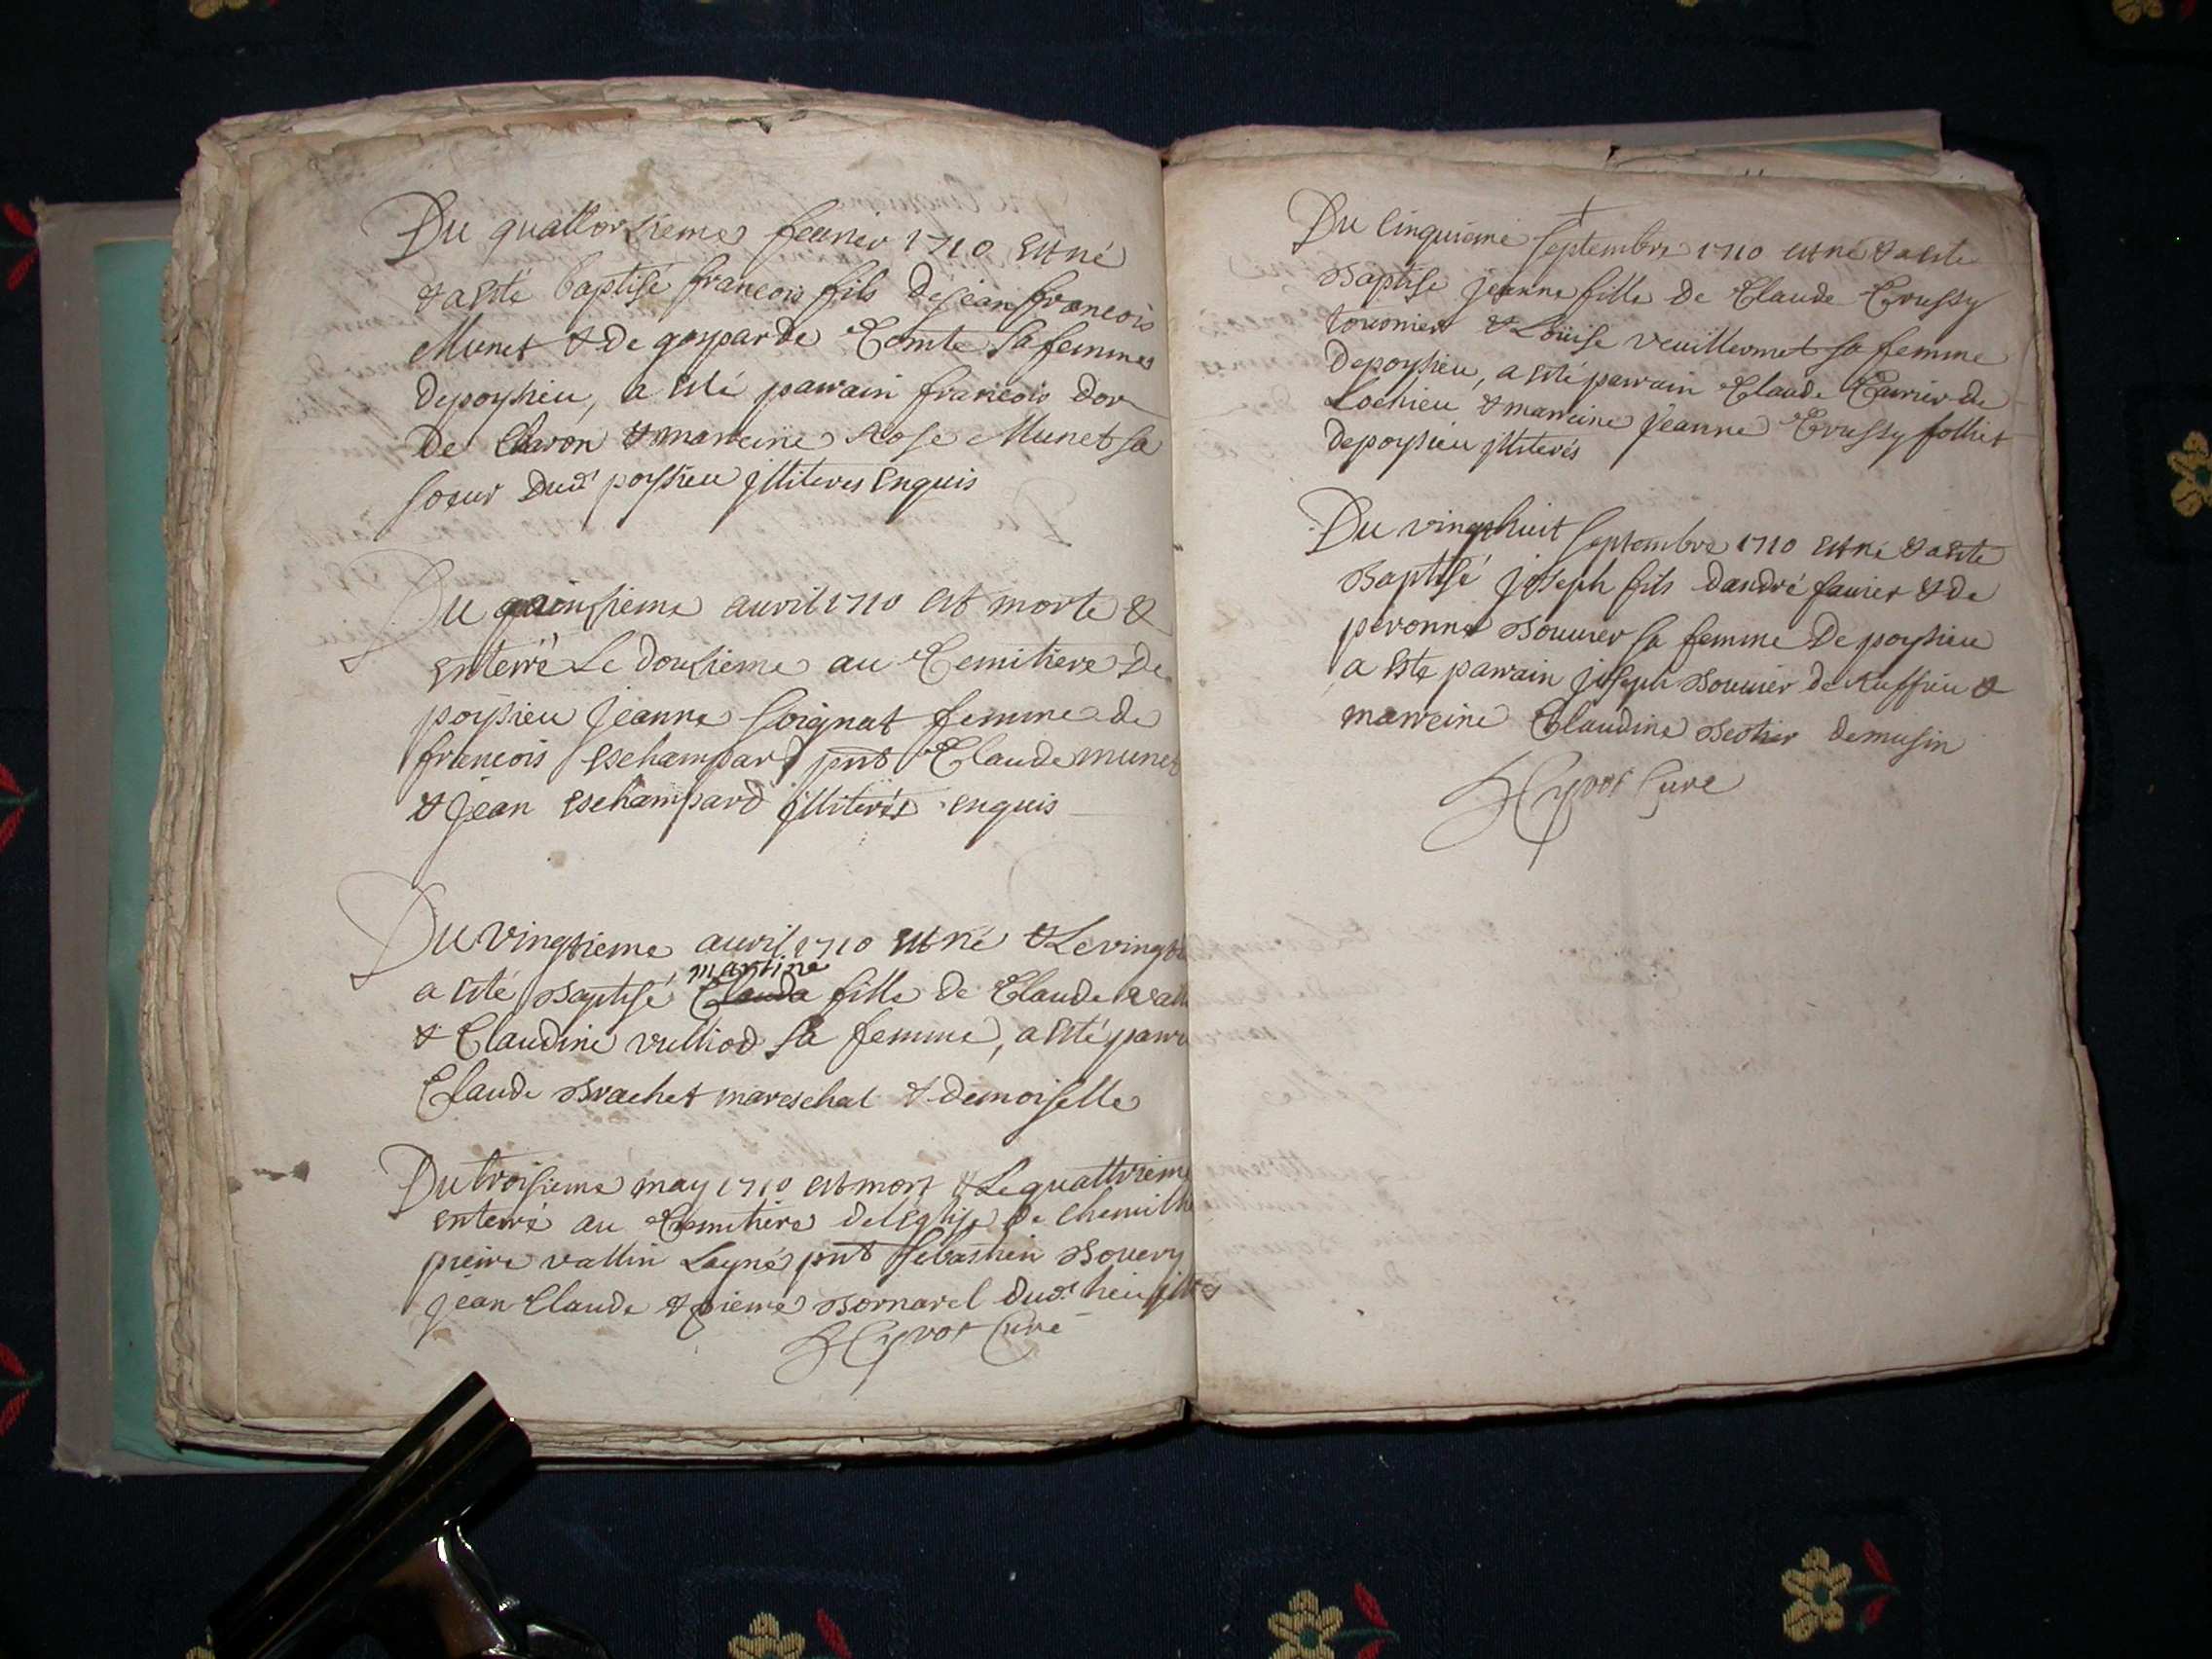 Du quattorsieme feurier 1710 est né
& a esté baptisé francois fils de jean francois
Munet & de gasparde Comte sa femme
depoysieu, a esté parrain francois dor
de & marreine Rose Munet sa
soeur dud poysieu jlliteres enquis
Du auril 1710 est morte &
enterré Le dousieme au Cemitiere de
poysieu jeanne soignat femme de
francois eschampard pnt Claude munet
& jean eschampard jlliterés enquis
Du vingtieme auril 1710 est né & Le vingt
martine
a esté Baptisé Clauda fille de Claude
& Claudine vulliod sa femme, a esté parr
Claude Brachet mareschal & demoiselle
Du troisieme may 1710 est mort & Le quattrieme
enterré au Cemitiere de leglise de
pierre vallin Layné pnt sebastien Bouery
jean Claude & pierre Bornarel dud lieu
Hyvot Curé
Du Cinquieme septembre 1710 est né & a este
Baptise jeanne fille de Claude Crussy
& Louise veuillermet sa femme
depoysieu, a esté parrain Claude de
Lochieu & marreine jeanne Crussy folliet
depoysieu jlliterés
Du vingthuit septembre 1710 est né & a este
Baptisé joseph fils dandré faurier & de
peronne Bouuier sa femme De poysieu
a este parrain joseph Bouuier de Ruffieu &
marreine Claudine demusin
Hyvot Curé